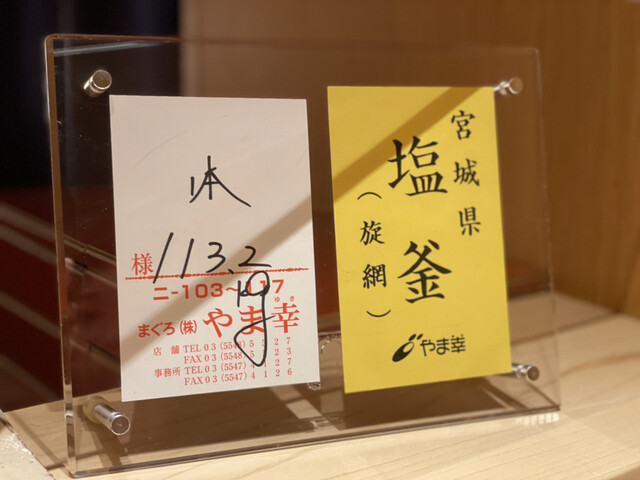 様 113.2
ニ-103~117
まぐろ(株)やま幸
ゆき
店舗 TEL 03(5548)5327
FAX 03(5548)5
事務所 TEL 03(5547)4127
FAX 03(5547)4126
宮城県
塩釜
(旋網)
やま幸